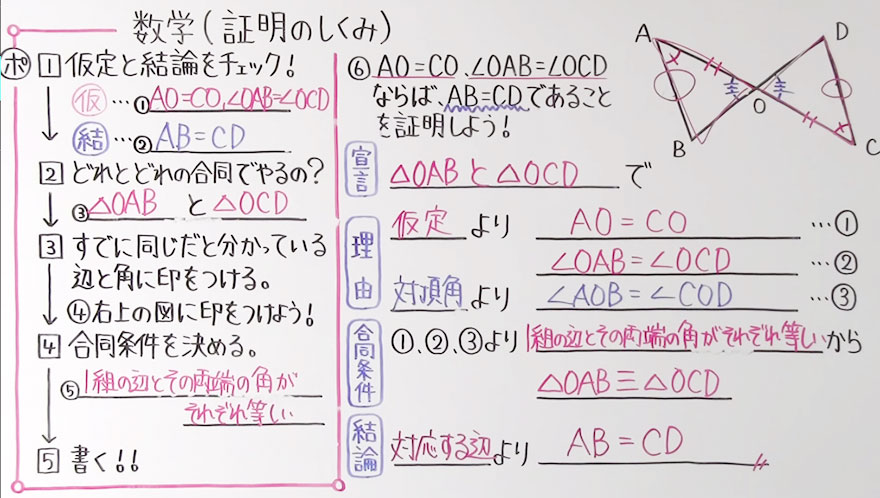 数学(証明のしくみ)
ポ 1 仮定と結論をチェック!
仮 …① AO=CO, ∠OAB=∠OCD
結 …② AB=CD
2 どれとどれの合同でやるの?
③ △OAB と △OCD
3 すでに同じだと分かっている
辺と角に印をつける。
④右上の図に印をつけよう!
4 合同条件を決める。
⑤ 1組の辺とその両端の角が
それぞれ等しい
5 書く!!
⑥ AO=CO、∠OAB=∠OCD
ならば、AB=CDであること
を証明しよう!
A
D
O
B
C
宣言 △OABと△OCD で
理由 仮定 より AO=CO …①
∠OAB=∠OCD …②
対頂角 より ∠AOB=∠COD …③
合同条件 ①、②、③より 1組の辺とその両端の角がそれぞれ等しいから
△OAB≡△OCD
結論 対応する辺より AB=CD